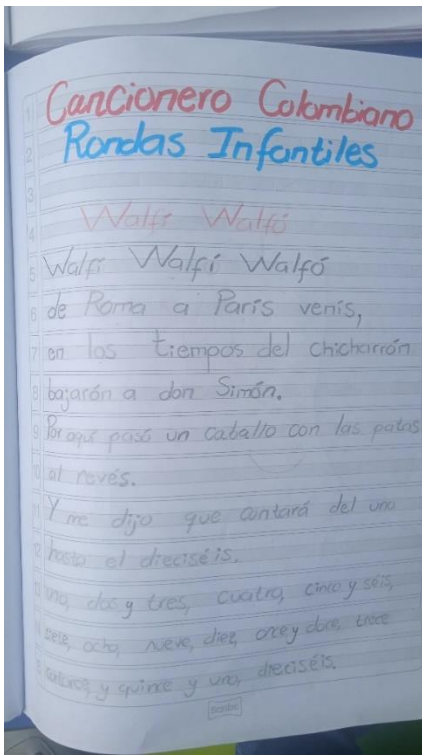 Cancionero Colombiano
Rondas Infantiles
Walfí Walfó
Walfí Walfí Walfó
de Roma a París venís,
en los tiempos del chicharrón
bajarón a don Simón.
Por aquí pasó un caballo con las patas
al revés.
Y me dijo que contará del uno
hasta el dieciséis.
uno, dos y tres, cuatro, cinco y séis,
siete, ocho, nueve, diez, once y doce, trece
catorce, y quince y uno, dieciséis.
Scribe